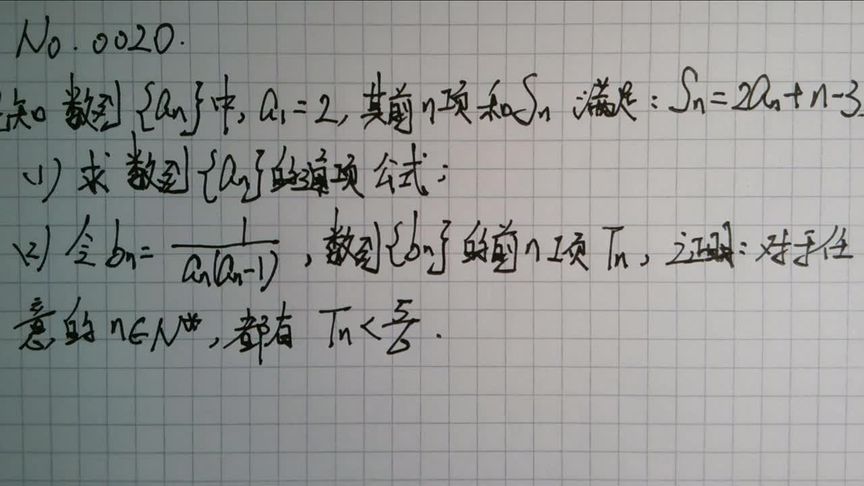 No. 0020.
知 数列{aₙ}中, a₁=2, 其前n项和Sₙ 满足: Sₙ=2aₙ+n-3.
(1) 求数列{aₙ}的通项公式;
(2) 令 bₙ= 1/(aₙ(aₙ-1)) , 数列{bₙ}的前n项 Tₙ, 证明: 对于任
意的 n∈N*, 都有 Tₙ<5/6.